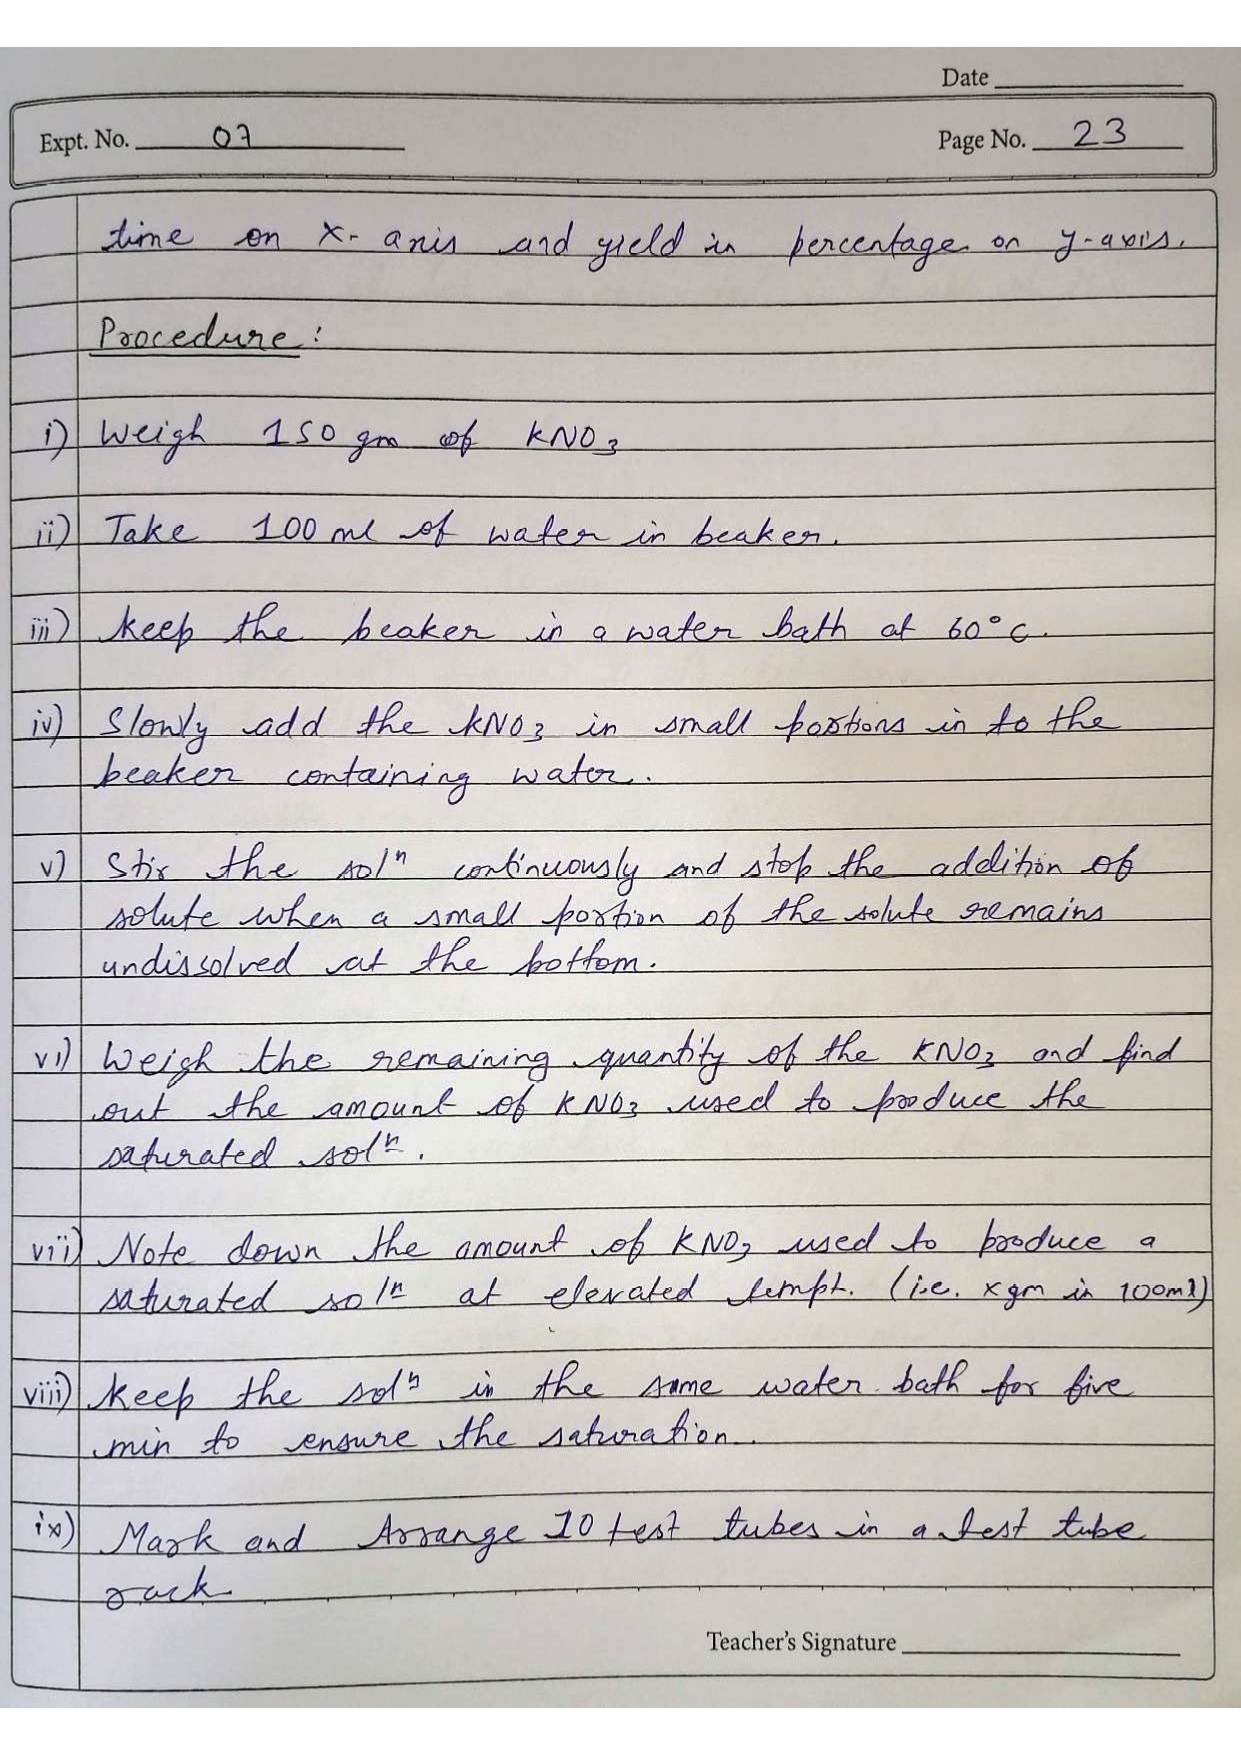 Date
Expt. No. 07
Page No. 23
time on x- axis and yield in percentage on y-axis.
Procedure :
i) Weigh 150 gm of KNO3
ii) Take 100 ml of water in beaker.
iii) keep the beaker in a water bath at 60°C.
iv) Slowly add the KNO3 in small portions in to the
beaker containing water.
v) Stir the solⁿ continuously and stop the addition of
solute when a small portion of the solute remains
undissolved at the bottom.
vi) Weigh the remaining quantity of the KNO3 and find
out the amount of KNO3 used to produce the
saturated solⁿ.
vii) Note down the amount of KNO3 used to produce a
saturated solⁿ at elevated tempt. (i.e. x gm in 100ml)
viii) keep the solⁿ in the same water bath for five
min to ensure the saturation.
ix) Mark and Arrange 10 test tubes in a test tube
rack.
Teacher's Signature